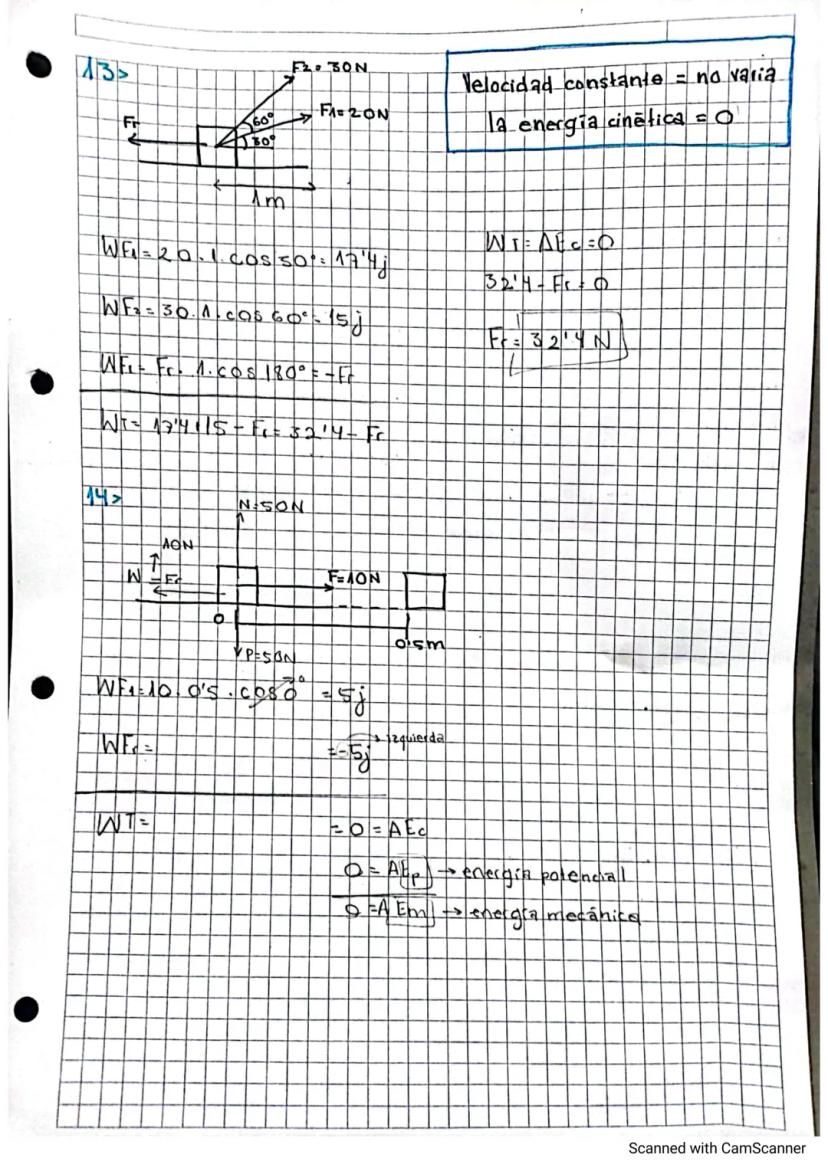 13>
F2 = 30N
F1=20N
60°
30°
Fr
1m
Velocidad constante = no varia
la energía cinética = 0
WF1 = 20 . 1 . cos 30° = 17'4j
WF2 = 30. 1. cos 60° = 15j
WFr = Fr. 1. cos 180° = -Fr
WT = 17'4+15 - Fr = 32'4 - Fr
WT = ΔEc = 0
32'4 - Fr = 0
Fr = 32'4 N
14>
N=50N
10N
Fr
F=10N
0
0'5m
P=50N
WF1=10. 0'5 . cos 0° = 5j
WFr = = -5j → izquierda
WT = = 0 = ΔEc
0 = ΔEp → energía potencial
0 = ΔEm → energía mecánica
Scanned with CamScanner